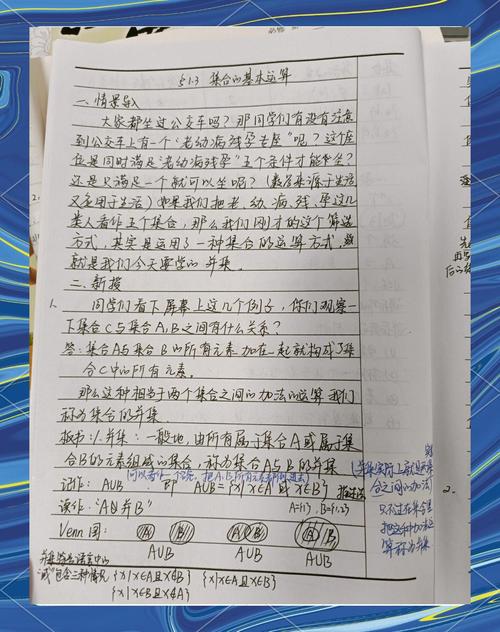 §1.3 集合的基本运算
一、情景导入
大家都坐过公交车吗？那同学们有没有注意
到公交车上有一个"老幼病残孕专座"呢？这个座
位是同时满足"老幼病残孕"五个条件才能坐呢？
还是只满足一个就可以坐呢？（数学来源于生活
又应用于生活）如果我们把老、幼、病、残、孕这几
类人看作五个集合，那么我们刚才的这个
方式，其实是运用了一种集合的运算方式，
就是我们今天要学的并集。
二、新授
1. 同学们看下屏幕上这几个例子，你们观察一
下集合C与集合A，B之间有什么关系？
答：集合A与集合B的所有元素加在一起就构成了集
合C中的所有元素。
那么这种相当于两个集合之间的加法的运算我们
称为集合的并集
板书：1.并集：一般地，由所有属于集合A或属于集
合B的元素组成的集合，称为集合A与B的并集
记作：A∪B 即 A∪B={x|x∈A或x∈B}
读作："A并B" A={1}，B={1,2}
Venn图： A B A B
A∪B A∪B A∪B
"或"包含三种情况 {x|x∈A且x∉B} {x|x∈A且x∈B}
{x|x∈B且x∉A}
合之间的加法)
把这种加法
算称为并集
2.